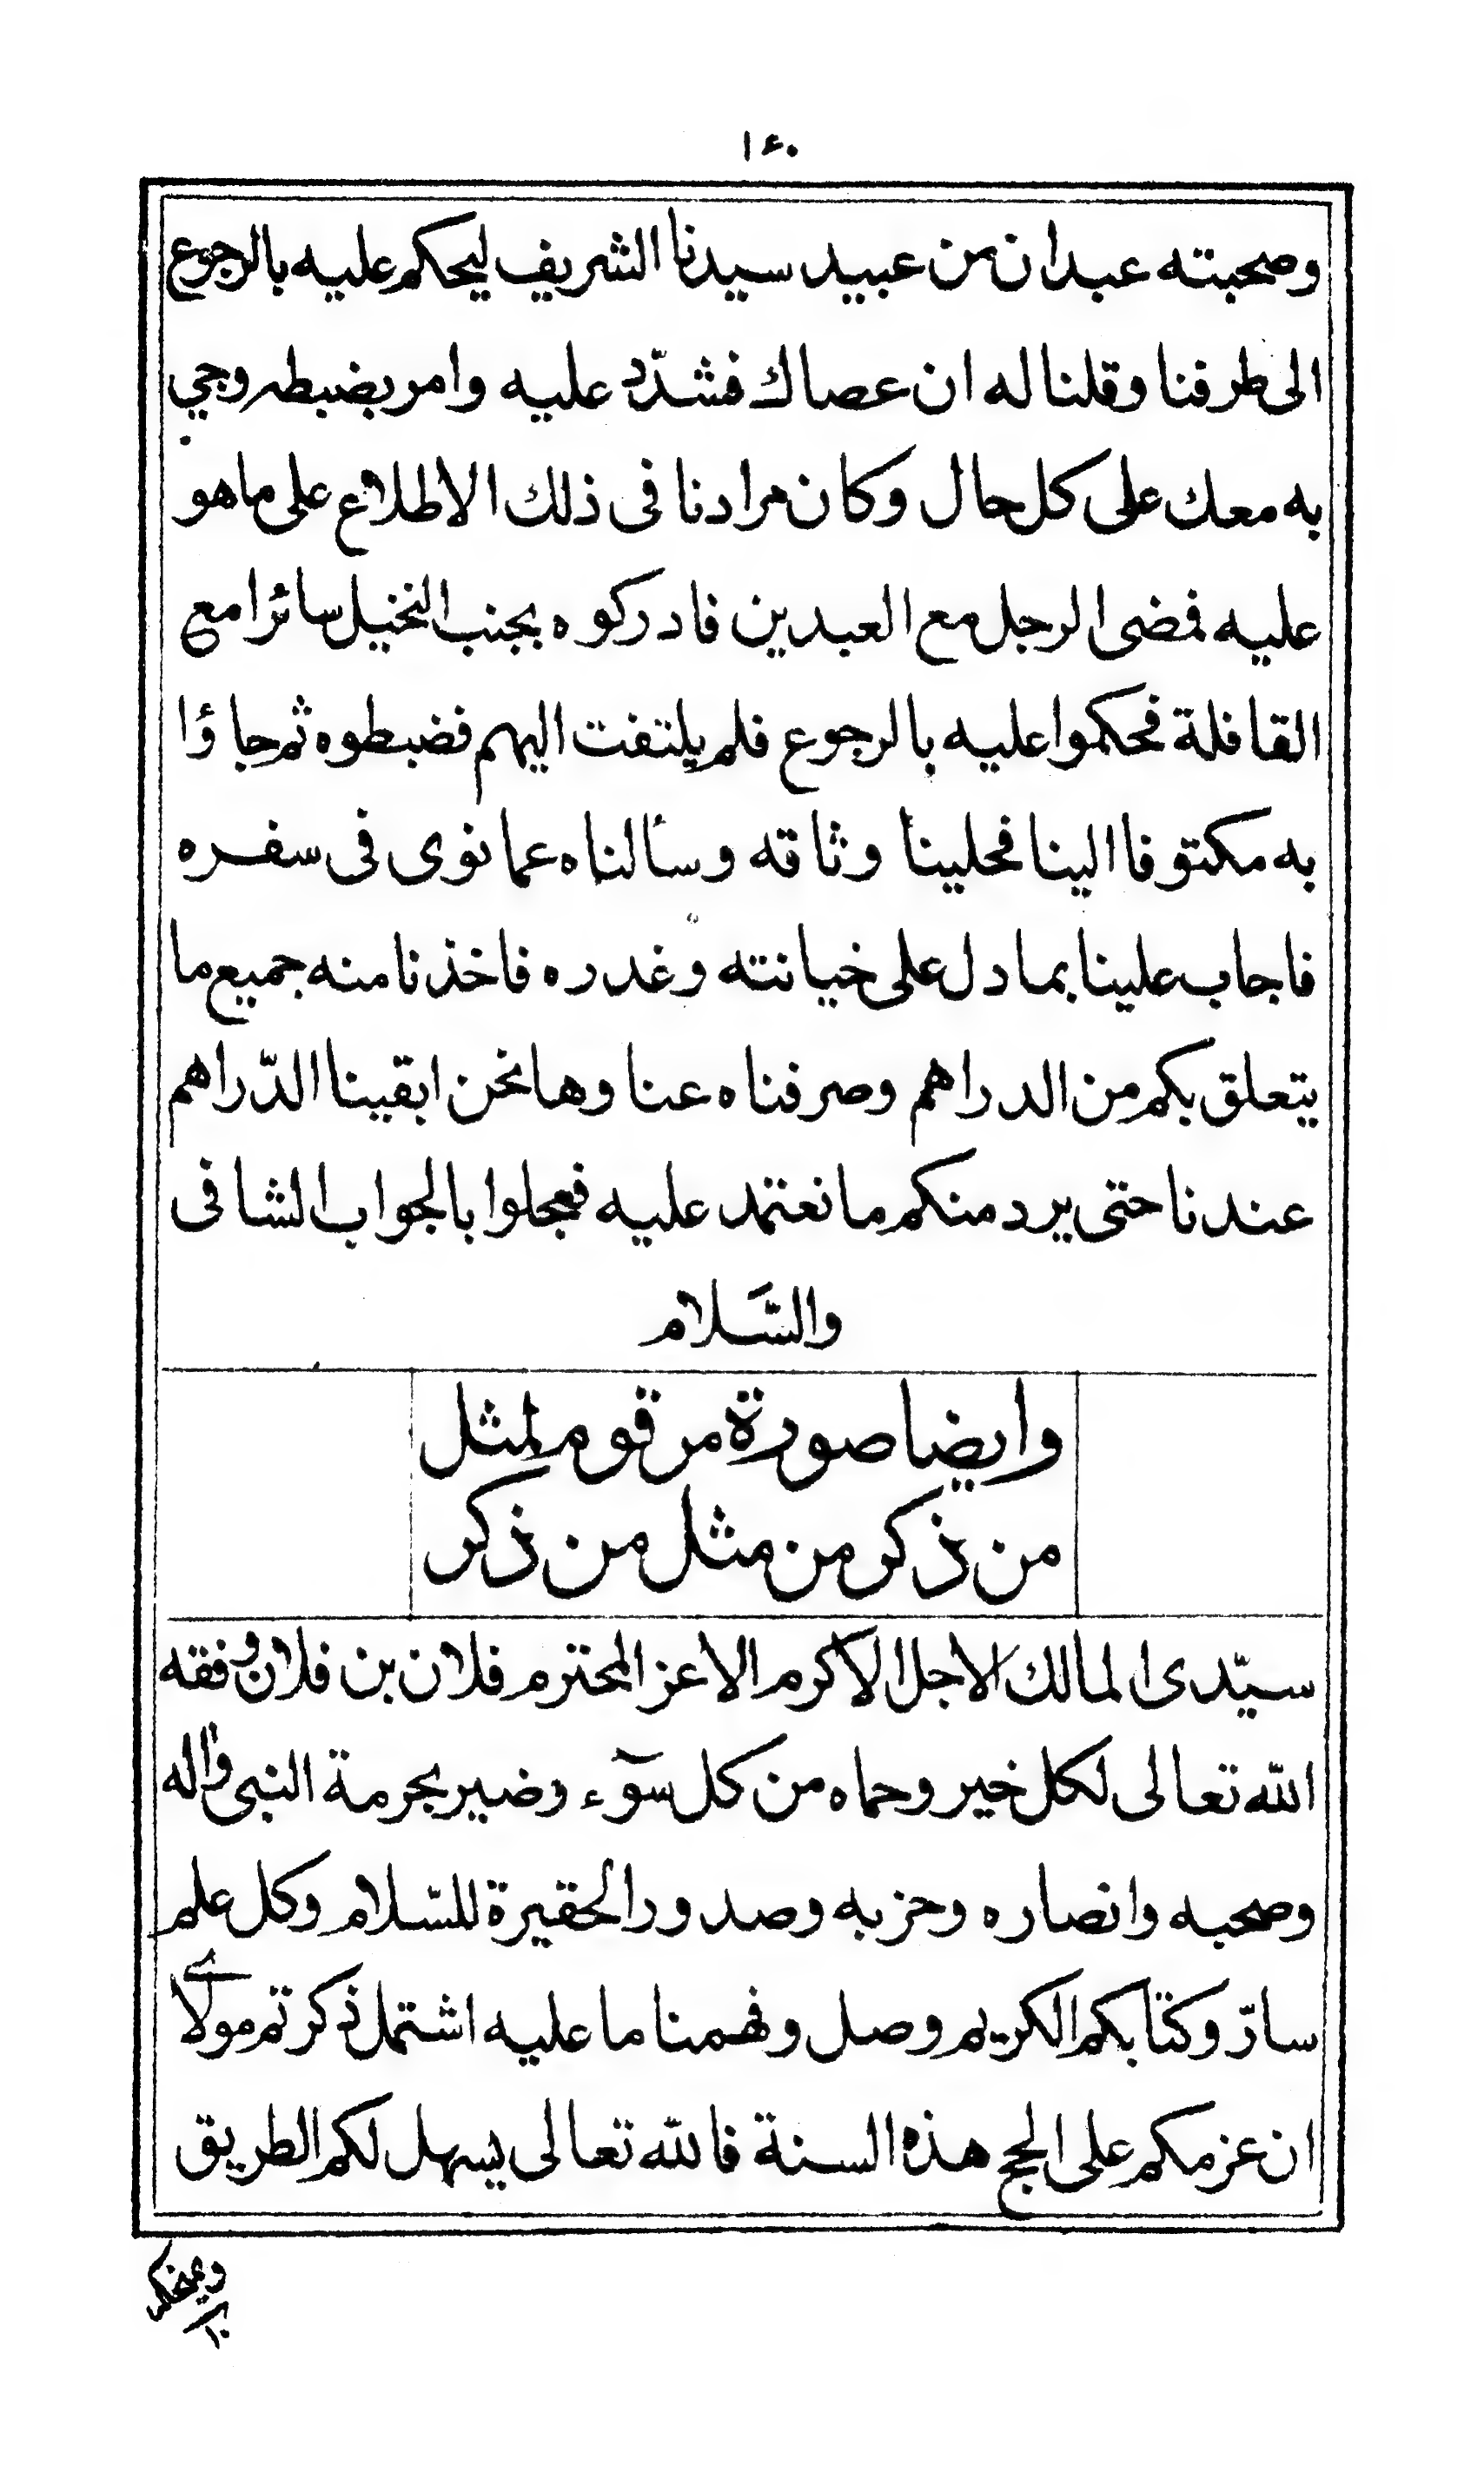 ١٤٠
وصحبته عبدان من عبيد سيدنا الشريف ليحكم عليه بالرجوع
الى طرفنا وقلنا له ان عصاك فشدّد عليه وامر بضبطه وجئ
به معك على كل حال وكان مرادنا فى ذلك الاطلاع على ما هو
عليه فمضى الرجل مع العبدين فادركوه بجنب النخيل سائرا مع
القافلة فحكموا عليه بالرجوع فلم يلتفت اليهم فضبطوه ثم جاؤا
به مكتوفا الينا فحلينا وثاقه وسألناه عما نوى فى سفره
فاجاب علينا بما دل على خيانته وغدره فاخذنا منه جميع ما
يتعلق بكم من الدراهم وصرفناه عنا وها نحن ابقينا الدّراهم
عندنا حتى يرد منكم ما نعتمد عليه فعجلوا بالجواب الشافى
والسَّلام
وايضا صورة مرقوم لمثل
من ذكر من مثل من ذكر
سيّدى المالك الاجل الاكرم الاعز المحترم فلان بن فلان وفقه
الله تعالى لكل خير وحماه من كل سوٓء وضير بحرمة النبى واله
وصحبه وانصاره وحزبه وصدور الحقيرة للسّلام وكل علم
سارّ وكتابكم الكريم وصل وفهمنا ما عليه اشتمل ذكرتم مولاے
ان عزمكم على الحج هذه السنة فالله تعالى يسهل لكم الطريق